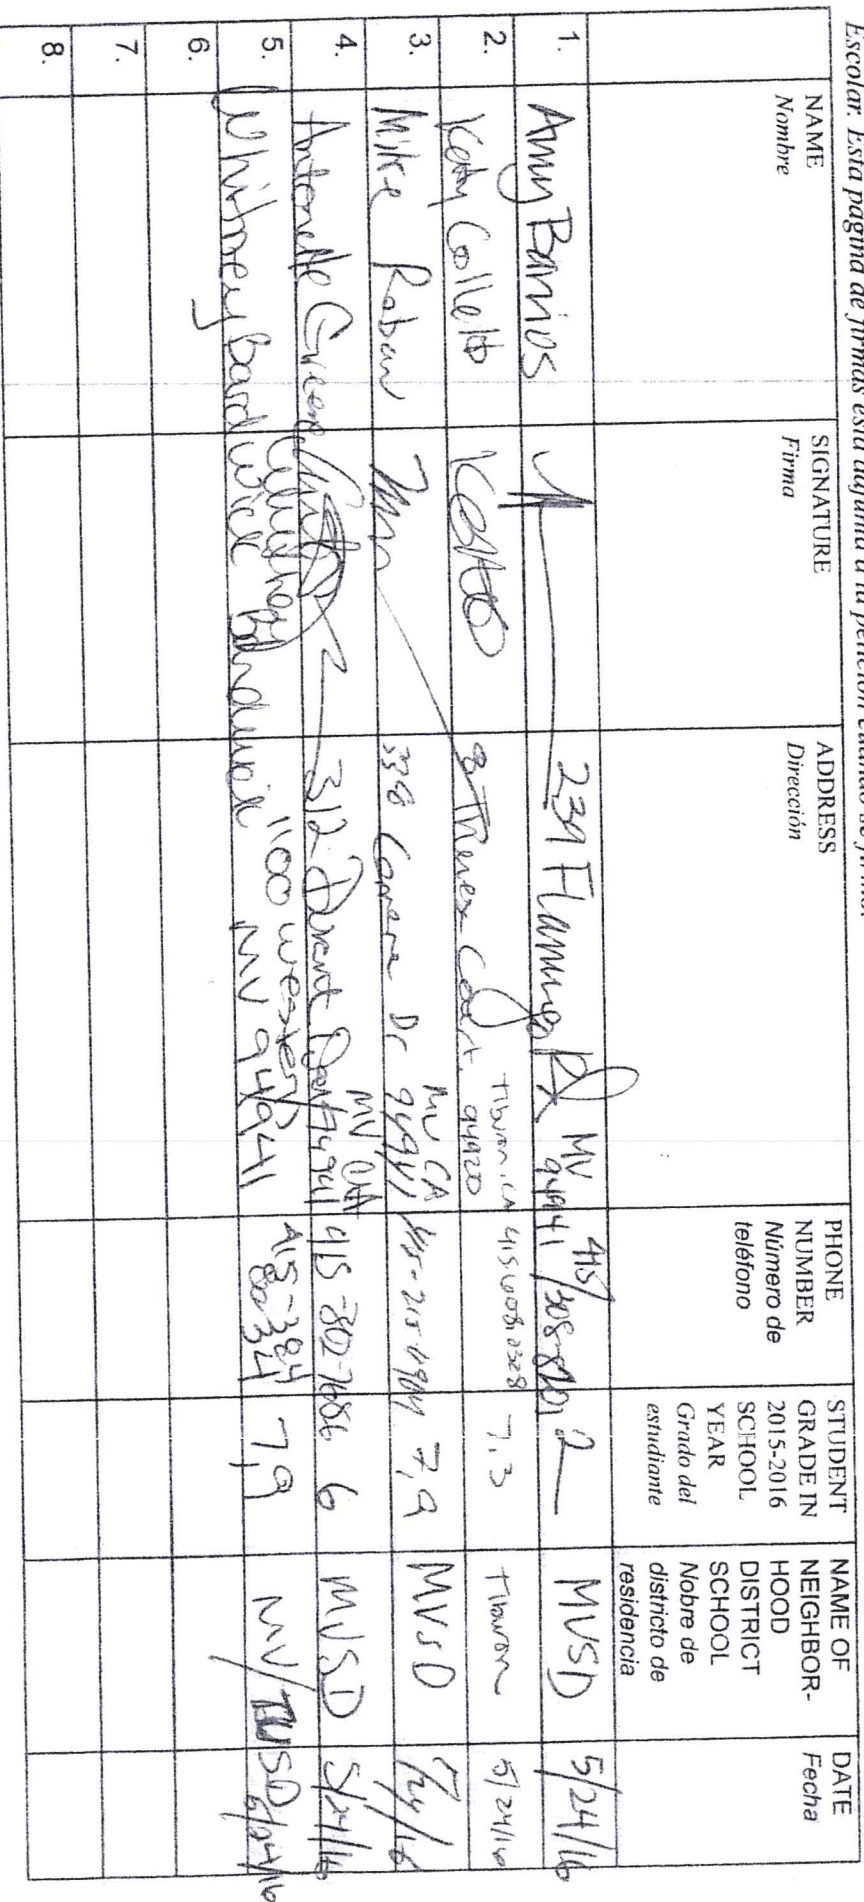 Escolar. Esta pagina de firmas está adjunta a la petición cuando se firmó.
NAME
Nombre
SIGNATURE
Firma
ADDRESS
Dirección
PHONE
NUMBER
Número de
teléfono
STUDENT
GRADE IN
2015-2016
SCHOOL
YEAR
Grado del
estudiante
NAME OF
NEIGHBOR-
HOOD
DISTRICT
SCHOOL
Nobre de
districto de
residencia
DATE
Fecha
1. Amy Barrios 239 Flamingo Rd MV 94941 415/308- 2 MVSD 5/24/16
2. Katy Colletto 8 Court, Tiburon, CA 94920 415 608 2328 7,3 Tiburon 5/24/16
3. Mike Raban 338 Dr MV CA 94941 7,9 MVSD 5/24/16
4. Antonette Greene 312 Durant MV CA 94941 415-302-7686 6 MVSD 5/24/16
5. Whitney Bardwick Whitney Bardwick 1100 western MV 94941 415-384 8034 7,9 MV/ 5/24/16
6.
7.
8.